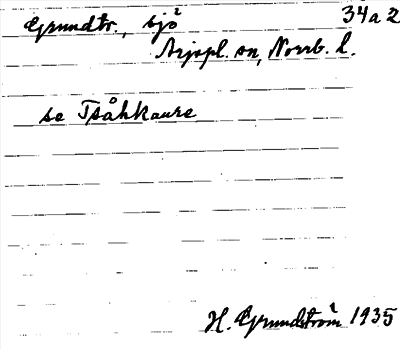 Grundtr., sjö 34a2
Arjepl. sn, Norrb. l.
se Tsåhkaure
H. Grundström 1935